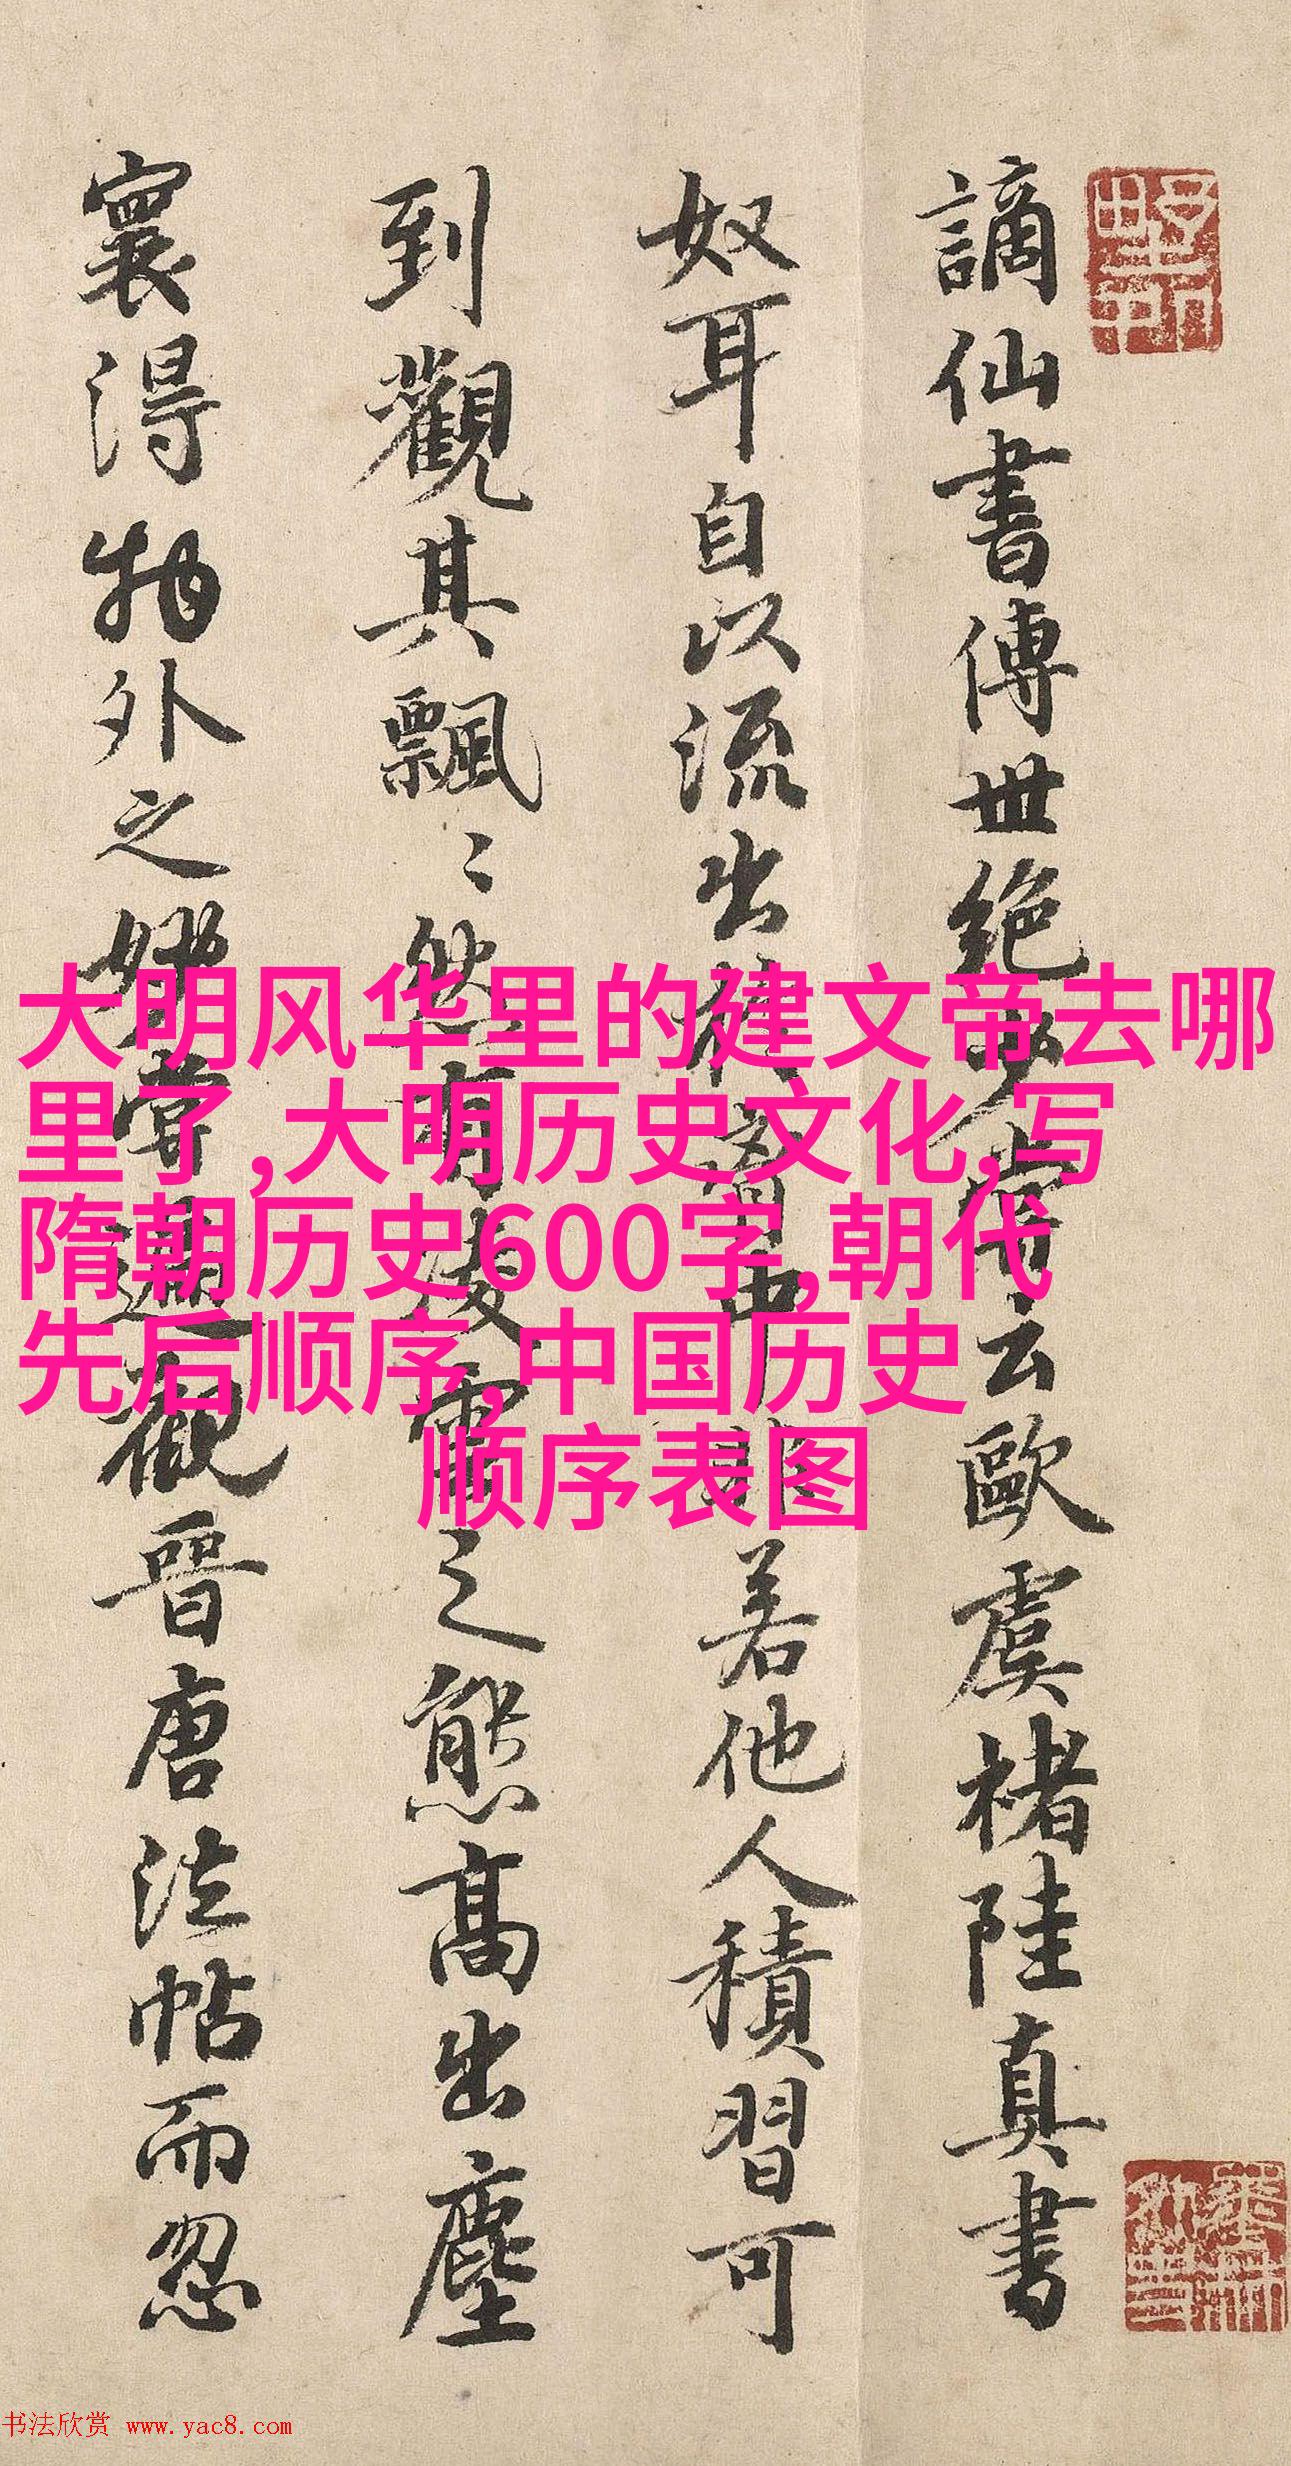 謫仙書傳世絕少嘗云歐虞褚陸真書
奴耳自以流出於胷中非若他人積習可
到觀其飄〻然有凌雲之態高出塵
寰得物外之妙嘗遍觀晉唐法帖而忽
大明风华里的建文帝去哪
里了,大明历史文化,写
隋朝历史600字,朝代
先后顺序,中国历史
顺序表图
书法欣赏 www.yac8.com